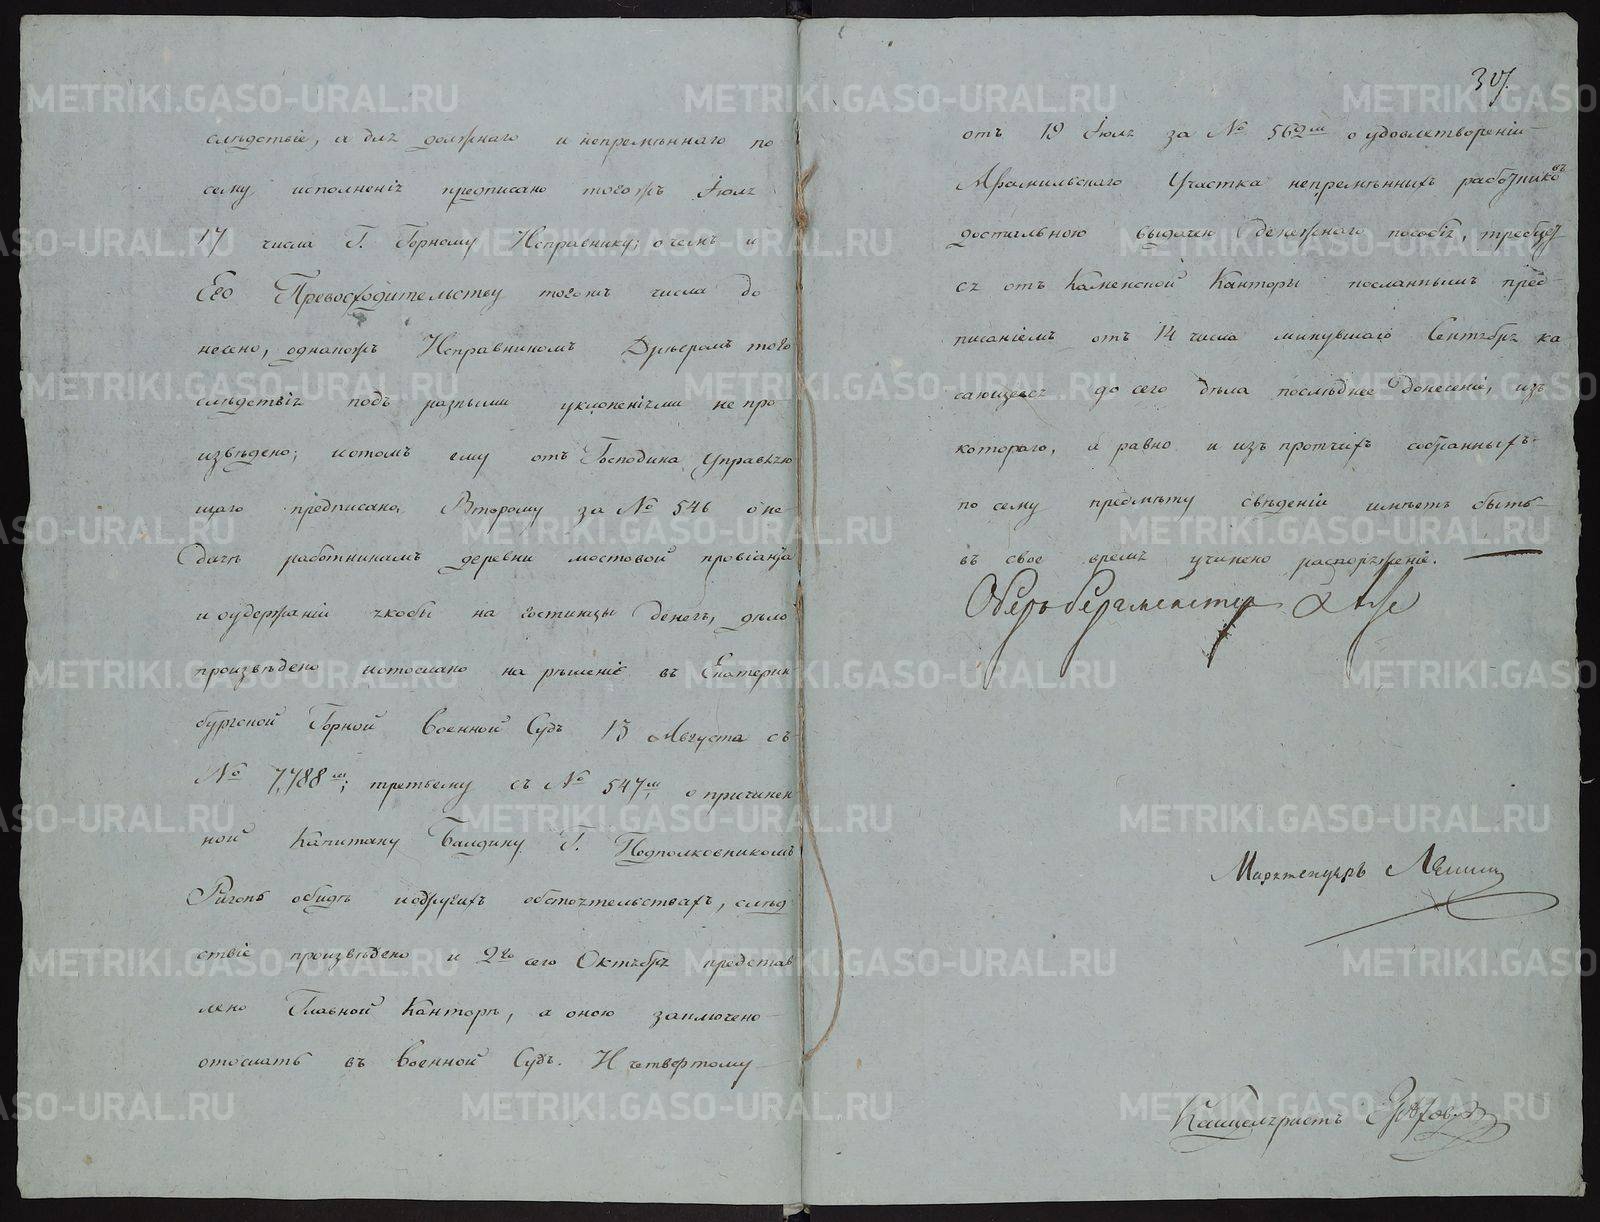 слѣдствіе, а для должнаго и непремѣннаго по
сему исполненія предписано тогожъ Іюля
17 числа Г. Горному Исправнику; о чемъ и
Его Превосходительству тогожъ числа до
несено, однакожъ Исправникомъ того
слѣдствія подъ разными уклоненіями не про
извѣдено; потомъ ему отъ Господина Управляю
щаго предписано, Второму за № 546 о не
дачѣ работникамъ деревни мостовой провіянта
и оудержаніи якобы на гостинцы денегъ, дѣло
произвѣдено и отослано на рѣшеніе въ Екатерин
бургской Горной Военной Судъ 13 Августа съ
№ 7,788м; третьему съ № 547м, о причинен
ной Капитану Балдину Г. Подполковникомъ
обидѣ и другихъ обстоятельствахъ, слѣд
ствіе произвѣдено и 2го сего Октября представ
лено Главной Канторѣ, а оною заключено
отослать въ Военной Судъ. И четвертому
307.
отъ 19 Іюля за № 569м о удовлетвореніи
Арамильскаго Участка непремѣнныхъ работниковъ
достальною выдачею денежнаго пособія, требует
ся отъ Каменской Канторы посланнымъ пред
писаніемъ отъ 14 числа минувшаго Сентября ка
сающееся до сего дѣла послѣднее донесеніе, изъ
котораго, и равно и изъ протчихъ собранныхъ
по сему предмѣту свѣденій имѣетъ быть
въ свое время учинено распоряженіе.
Оберъ бергмейстеръ
Маркшейдеръ
Канцеляристъ
METRIKI.GASO-URAL.RU